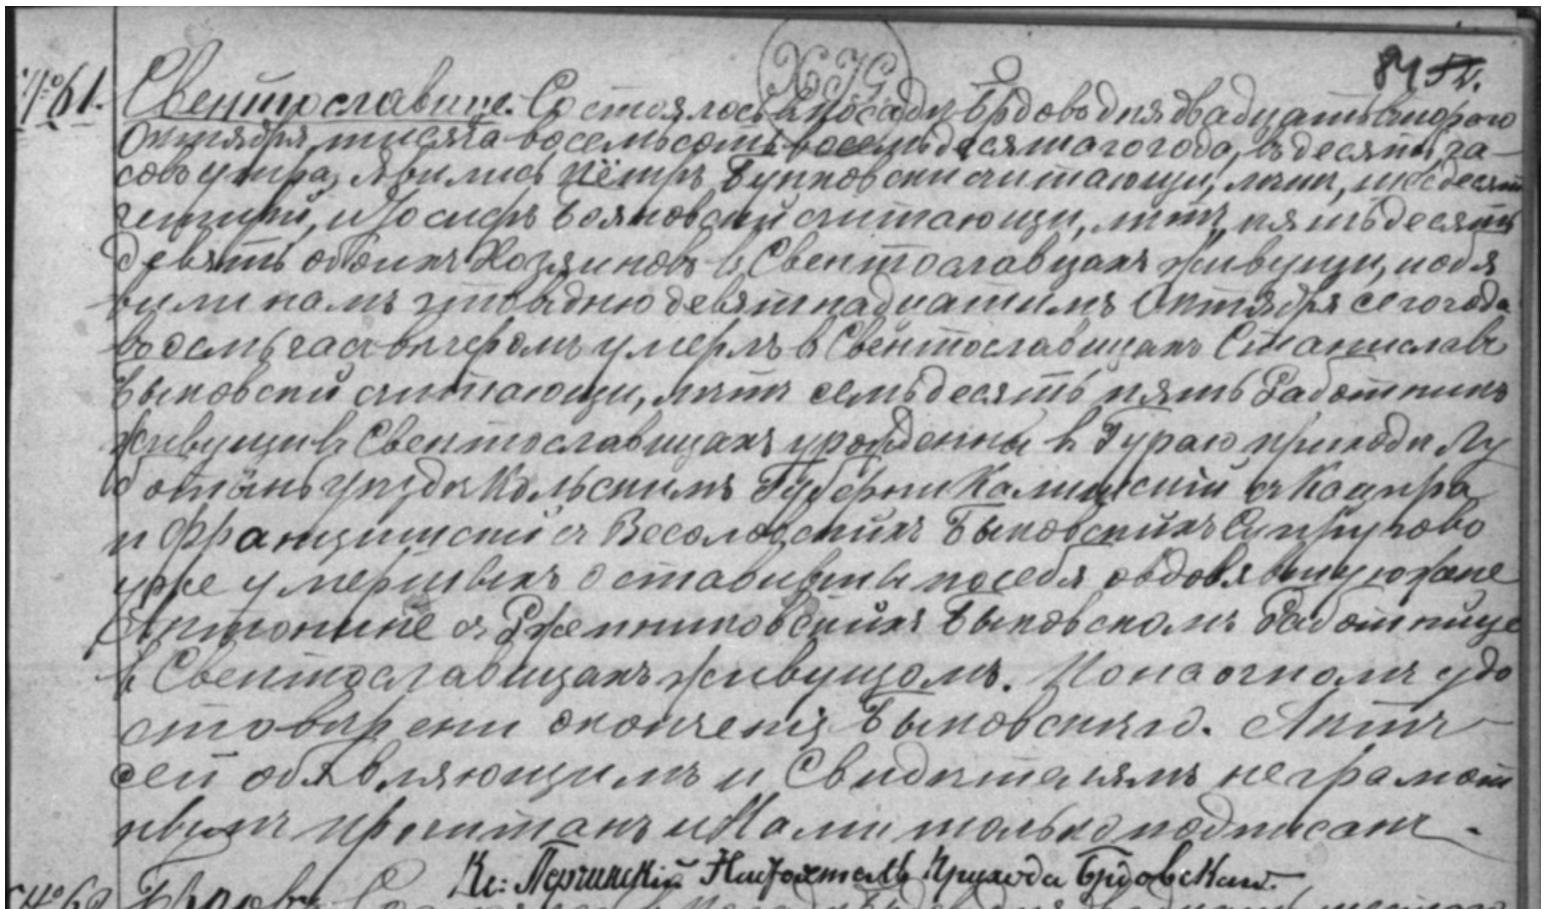 84
№ 61.
Свентославице. Состоялось в посаде Брдове дня двадцать второго
Октября тысяча восемьсотъ восемьдесятаго года, въ десять ча-
совъ утра, явились Пётръ Бутковски считающи, летъ, шесдесятъ
четыри, и Іосифъ Бояновскій считающи, летъ, пятьдесятъ
девять обоихъ Хозяиновъ в Свентославицахъ живущи, и обя
вили намъ что дню девятнадцатимъ Октября сего года
восемь часа вечеромъ умерлъ в Свентославицахъ Станиславъ
Быковскій считающи, летъ семьдесятъ пять Работникъ
живущи въ Свентославицахъ урожденны в Гураю приходи Лу
ботынь уезда Кольскимъ Губерни Калишскій съ Каспра
и Францишкій съ Весоловскихъ Быковскихъ Супругово
уже умершыхъ оставивши по себя овдовявшую жене
Антонине съ Ржепниковскихъ Быковскомъ Работнице
в Свентославицахъ живущомъ. По наочномъ удо
стоверени окончения Быковскего. Актъ
сей объявляющимъ и Свидетелямъ неграмот
нымъ прочитанъ и Нами только подписанъ.
Кс: Настоятель Прихода Брдовскаго.
№ 62